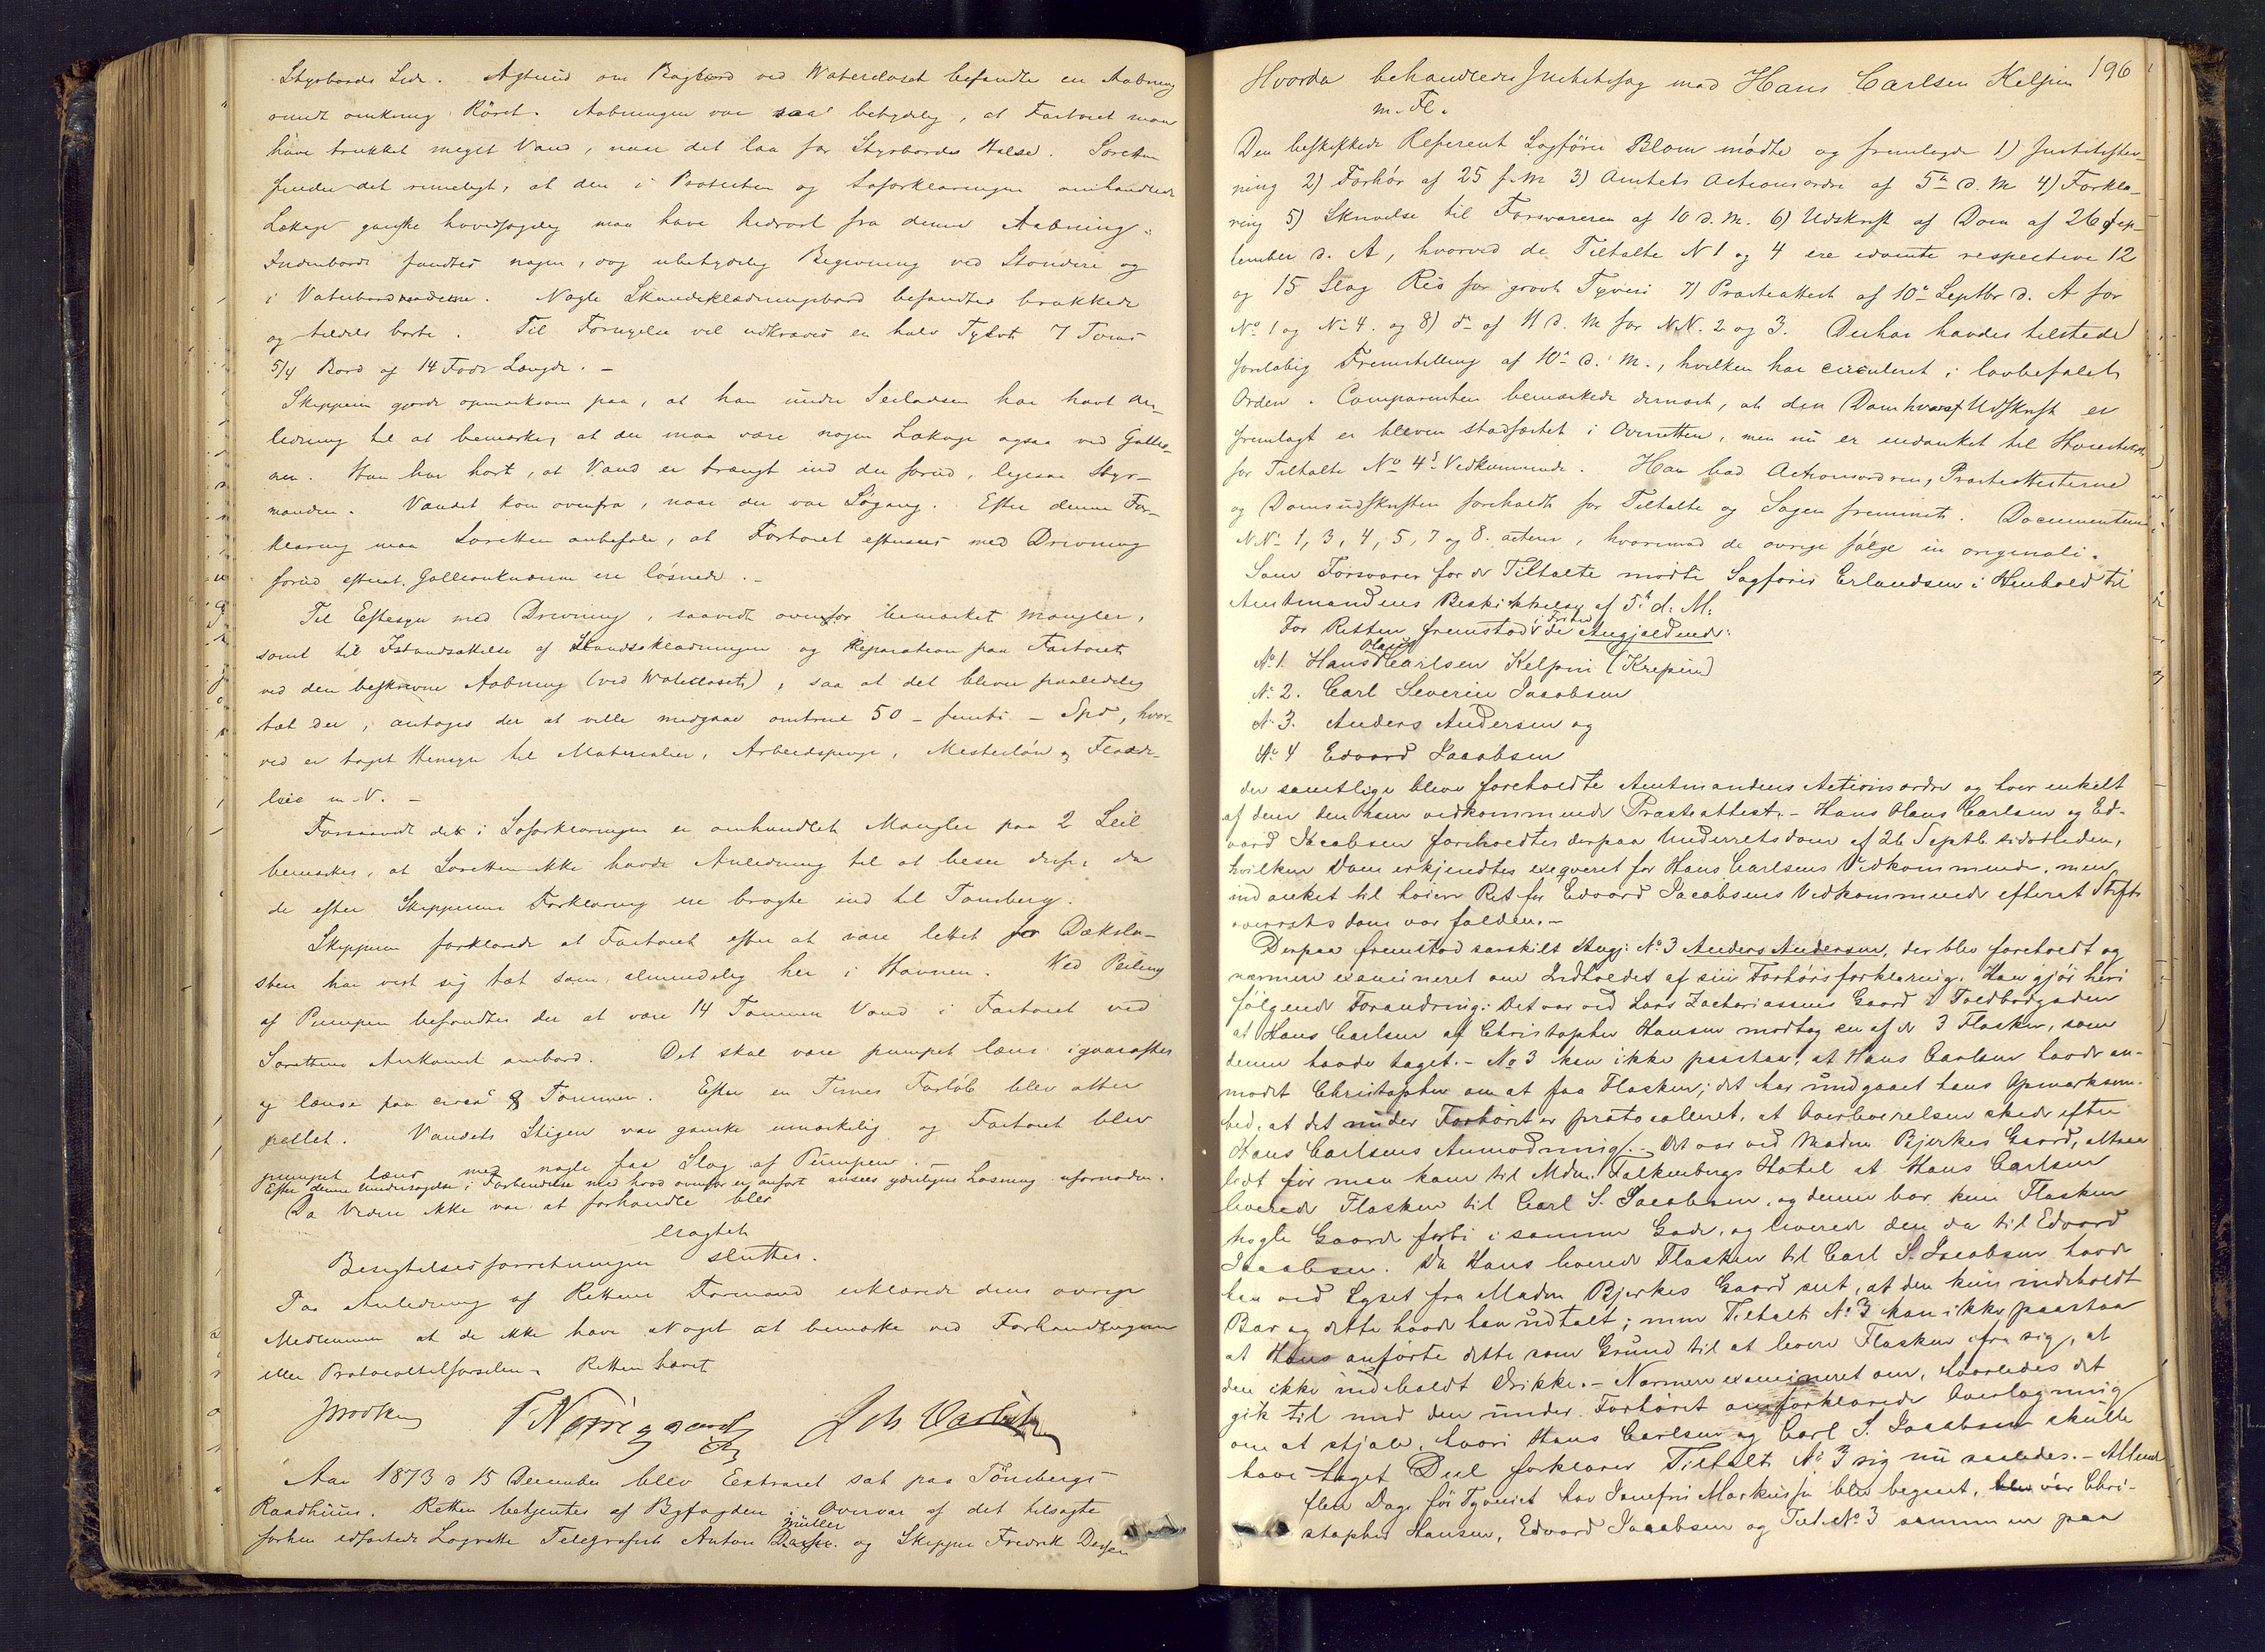 Styrbords Side. Agterud om Bagbord ved Waterclosct befandtes en Aabning
rundt omkring Röret. Aabningen var saa betydelig, at Fartøiet maa
have trukket meget Vand, naar det laa for Styrbordes Halse. Søretten
finder det rimeligt, at den i Protesten og Søforklaringen omhandlede
Lækage ganske hovedsagelig maa have hidrørt fra denne Aabning.
Indenbords fandtes nogen, dog ubetydelig Begivning ved Stöndere og
i Vaterbordnaaderne. Nogle Skandseklædningsbord befandtes brukkede
og tildels borte. Til Fornyelse vil udkræves en halv Tylvt 7 Toms
5/4 Bord af 14 Fods Længde. –
Skipperen gjorde opmærksom paa, at han under Seiladsen har havt An-
ledning til at bemærke, at der maa være nogen Lækage ogsaa ved Gallio-
nen. Han har hørt, at Vand er trængt ind der forud, ligesaa Styr-
manden. Vandet kom ovenfra, naar der var Søgang. Efter denne For-
klaring maa Søretten anbefale, at Fartøiet eftersees med Drivning
forud efterat Gallionknæerne ere løsnede. –
Til Eftersyn med Drivning, saavidt ovenfor bemærket mangler,
samt til Istandsættelse af Skandseklædningen og Reparation paa Fartøiet
ved den beskrevne Aabning (ved Waterclosets), saa at det bliver paalidelig
tæt der, antages der at ville medgaae omtrent 50 – femti – Spd, hvor-
ved er taget Hensyn til Materialier, Arbeidspenge, Mesterlön og Flaade-
leie m. V. –
Forsaavidt det i Søforklaringen er omhandlet Mangler paa 2 Seil
bemærkes, at Søretten ikke havde Anledning til at besee disse, da
de efter Skipperens Forklaring ere bragte ind til Tønsberg.
Skipperen forklarede at Fartøiet efter at være lettet for Dæksla-
sten har vist sig tæt som almindelig her i Havnen. Ved Peiling
af Pumpen befandtes der at være 14 Tommer Vand i Fartøiet ved
Sørettens Ankomst ombord. Det skal være pumpet læns igaaraftes
og lænse paa circa 8 Tommer. Efter en Times Forløb blev atter
peilet. Vandets Stigen var ganske umærkelig og Fartøiet blev
pumpet læns med nogle faa Slag af Pumpen.
Efter denne Undersøgelse i Forbindelse med hvad ovenfor er anført ansees yderligere Losning ufornøden.
Da Videre ikke var at forhandle blev
eragtet
Besigtelsesforretningen sluttes.
Paa Anledning af Rettens Formand erklærede dens øvrige
Medlemmer at de ikke have Noget at bemærke ved Forhandlingerne
eller Protocoltilførselen. Retten hævet
T Nørregaard Joh.
Aar 1873 d 15 December blev Extraret sat paa Tönsbergs
Raadhuus. Retten betjentes af Byfogden i Overvær af det tilsagte
forhen edfæstede Lagrette Telegrafist Anton Müller og Skipper Fredrik
196
Hvorda behandledes Justitssag mod Hans Carlsen Kelpin
m. Fl.
Den beskikkede Referent Sagförer Blom mödte og fremlagde 1) Justitsstev-
ning 2) Forhör af 25 f. M 3) Amtets Actionsordre af 5te d. M 4) Forkla-
ring 5) Skrivelse til Forsvareren af 10 d. M. 6) Udskrift af Dom af 26 Sep-
tember d. A, hvorved de Tiltalte N 1 og 4 ere idömte respective 12
og 15 Slag Ris for grovt Tyveri 7) Præsteattest af 10de Septbr d. A for
No 1 og No 4. og 8) do af 11 d. M for N.N. 2 og 3. Derhos havdes tilstede
foreløbig Fremstilling af 10de d. M., hvilken har circuleret i lovbefalet
Orden. Comparenten bemærkede dernæst, at den Dom hvoraf Udskrift er
fremlagt er bleven stadfæstet i Overretten, men nu er indanket til Høiesteret
for Tiltalte No 4s Vedkommende. Han bad Actionsordren, Præsteattesterne
og Domsudskriften foreholdt for Tiltalte og Sagen fremmet. Documenterne
N.No 1, 3, 4, 5, 7 og 8. acteres, hvorimod de øvrige fölge in originali.
Som Forsvarer for de Tiltalte mödte Sagförer Erlandsen i Henhold til
Amtmandens Beskikkelse af 5te d. M.
For Retten fremstod i Frihed de Angjældende:
No 1. Hans Olaus Carlsen Kelpin (Krepin)
No 2. Carl Severin Jacobsen
No 3. Anders Andersen og
No 4 Edvard Jacobsen
der samtlige bleve foreholdte Amtmandens Actionsordre og hver enkelt
af dem den ham vedkommende Præsteattest. – Hans Olaus Carlsen og Ed-
vard Jacobsen foreholdtes derpaa Underretsdom af 26 Septb. sidstleden,
hvilken Dom erkjendtes exeqveret for Hans Carlsens Vedkommende, men
indanket til höiere Ret for Edvard Jacobsens Vedkommende efterat Stifts
overretsdom var falden. –
Derpaa fremstod særskilt Angj: No 3 Anders Andersen, der blev foreholdt og
nærmere examineret om Indholdet af sin Forhörsforklaring. Han gjör heri
fölgende Forandring: Det var ved Lars Zachariassens Gaard i Toldbodgaden
at Hans Carlsen af Christopher Hansen modtog en af de 3 Flasker, som
denne havde taget. – No 3 kan ikke paastaa, at Hans Carlsen havde an-
modet Christopher om at faa Flasken; det har undgaaet hans Opmærksom-
hed, at det under Forhöret er protocolleret, at Overleverelsen skede efter
Hans Carlsens Anmodning. – Det var ved Madm Bjerkes Gaard, altsaa
lidt för man kom til Mdm. Falkenbergs Hotel at Hans Carlsen
leverede Flasken til Carl S. Jacobsen, og denne bar kun Flasken
nogle Gaarde forbi i samme Gade, og leverede den da til Edvard
Jacobsen. Da Hans leverede Flasken til Carl S. Jacobsen havde
han ved Lyset fra Madm Bjerkes Gaard seet, at den kun indeholdt
Bær og dette havde han udtalt; men Tiltalte No 3 kan ikke paastaa
at Hans anförte dette som Grund til at levere Flasken ifra sig, at
den ikke indeholdt Drikke. – Nærmere examineret om, hvorledes det
gik til med den under Forhöret omforklarede Overlægning
om at stjæle, hvori Hans Carlsen og Carl S. Jacobsen skulle
have taget Deel forklarer Tiltalte No 3 sig nu saaledes. –
flere Dage för Tyveriet hos Jomfru blev begaaet, var Chri-
stopher Hansen, Edvard Jacobsen og Tilt. No 3 sammen paa